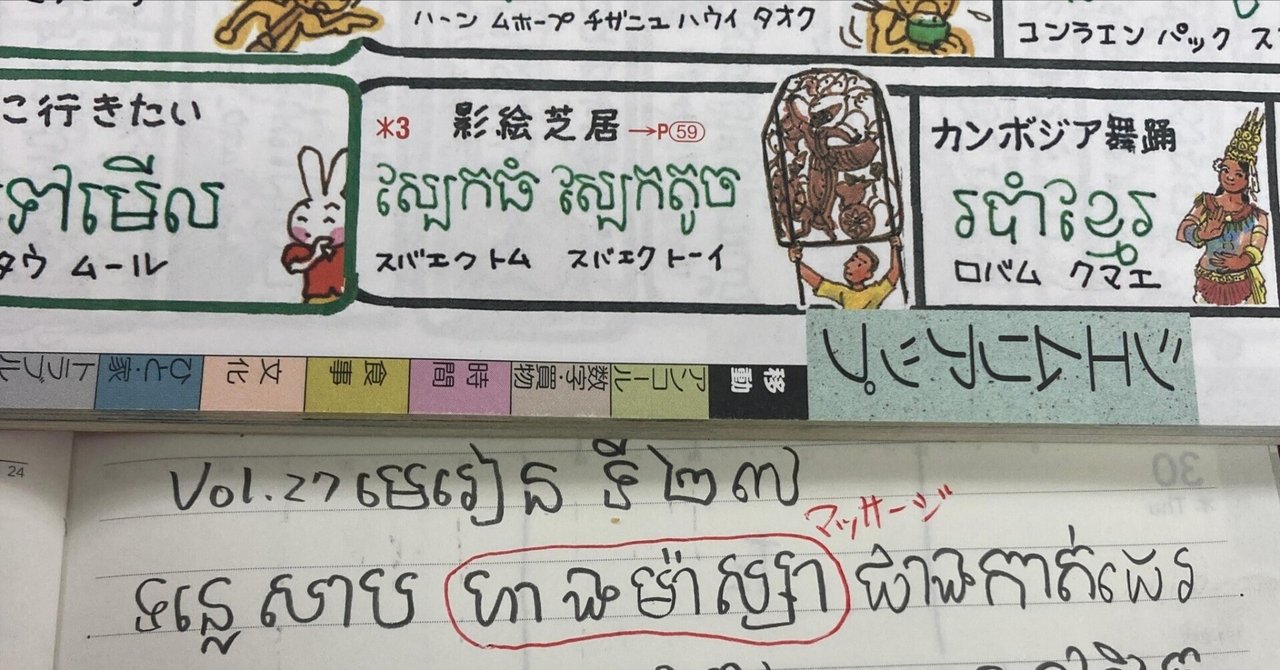 ハーン ムホープ チザニュ ハウイ タオク
コンラエン パック ス
こ 行きたい
ទៅមើល
タウ ムール
*3 影絵芝居 →P59
ស្បែកធំ ស្បែកតូច
スバエク トム スバエク トーイ
カンボジア舞踊
របាំខ្មែរ
ロバム クマエ
トラブル
ひと・家
文化
食事
時間
数字・買物
アンコール
移動
シェムリアップ
24
30
Thu
Vol.27 មេរៀន ទី ២៧
マッサージ
ទន្លេសាប ហាងម៉ាស្សា ជាងកាត់ដេរ